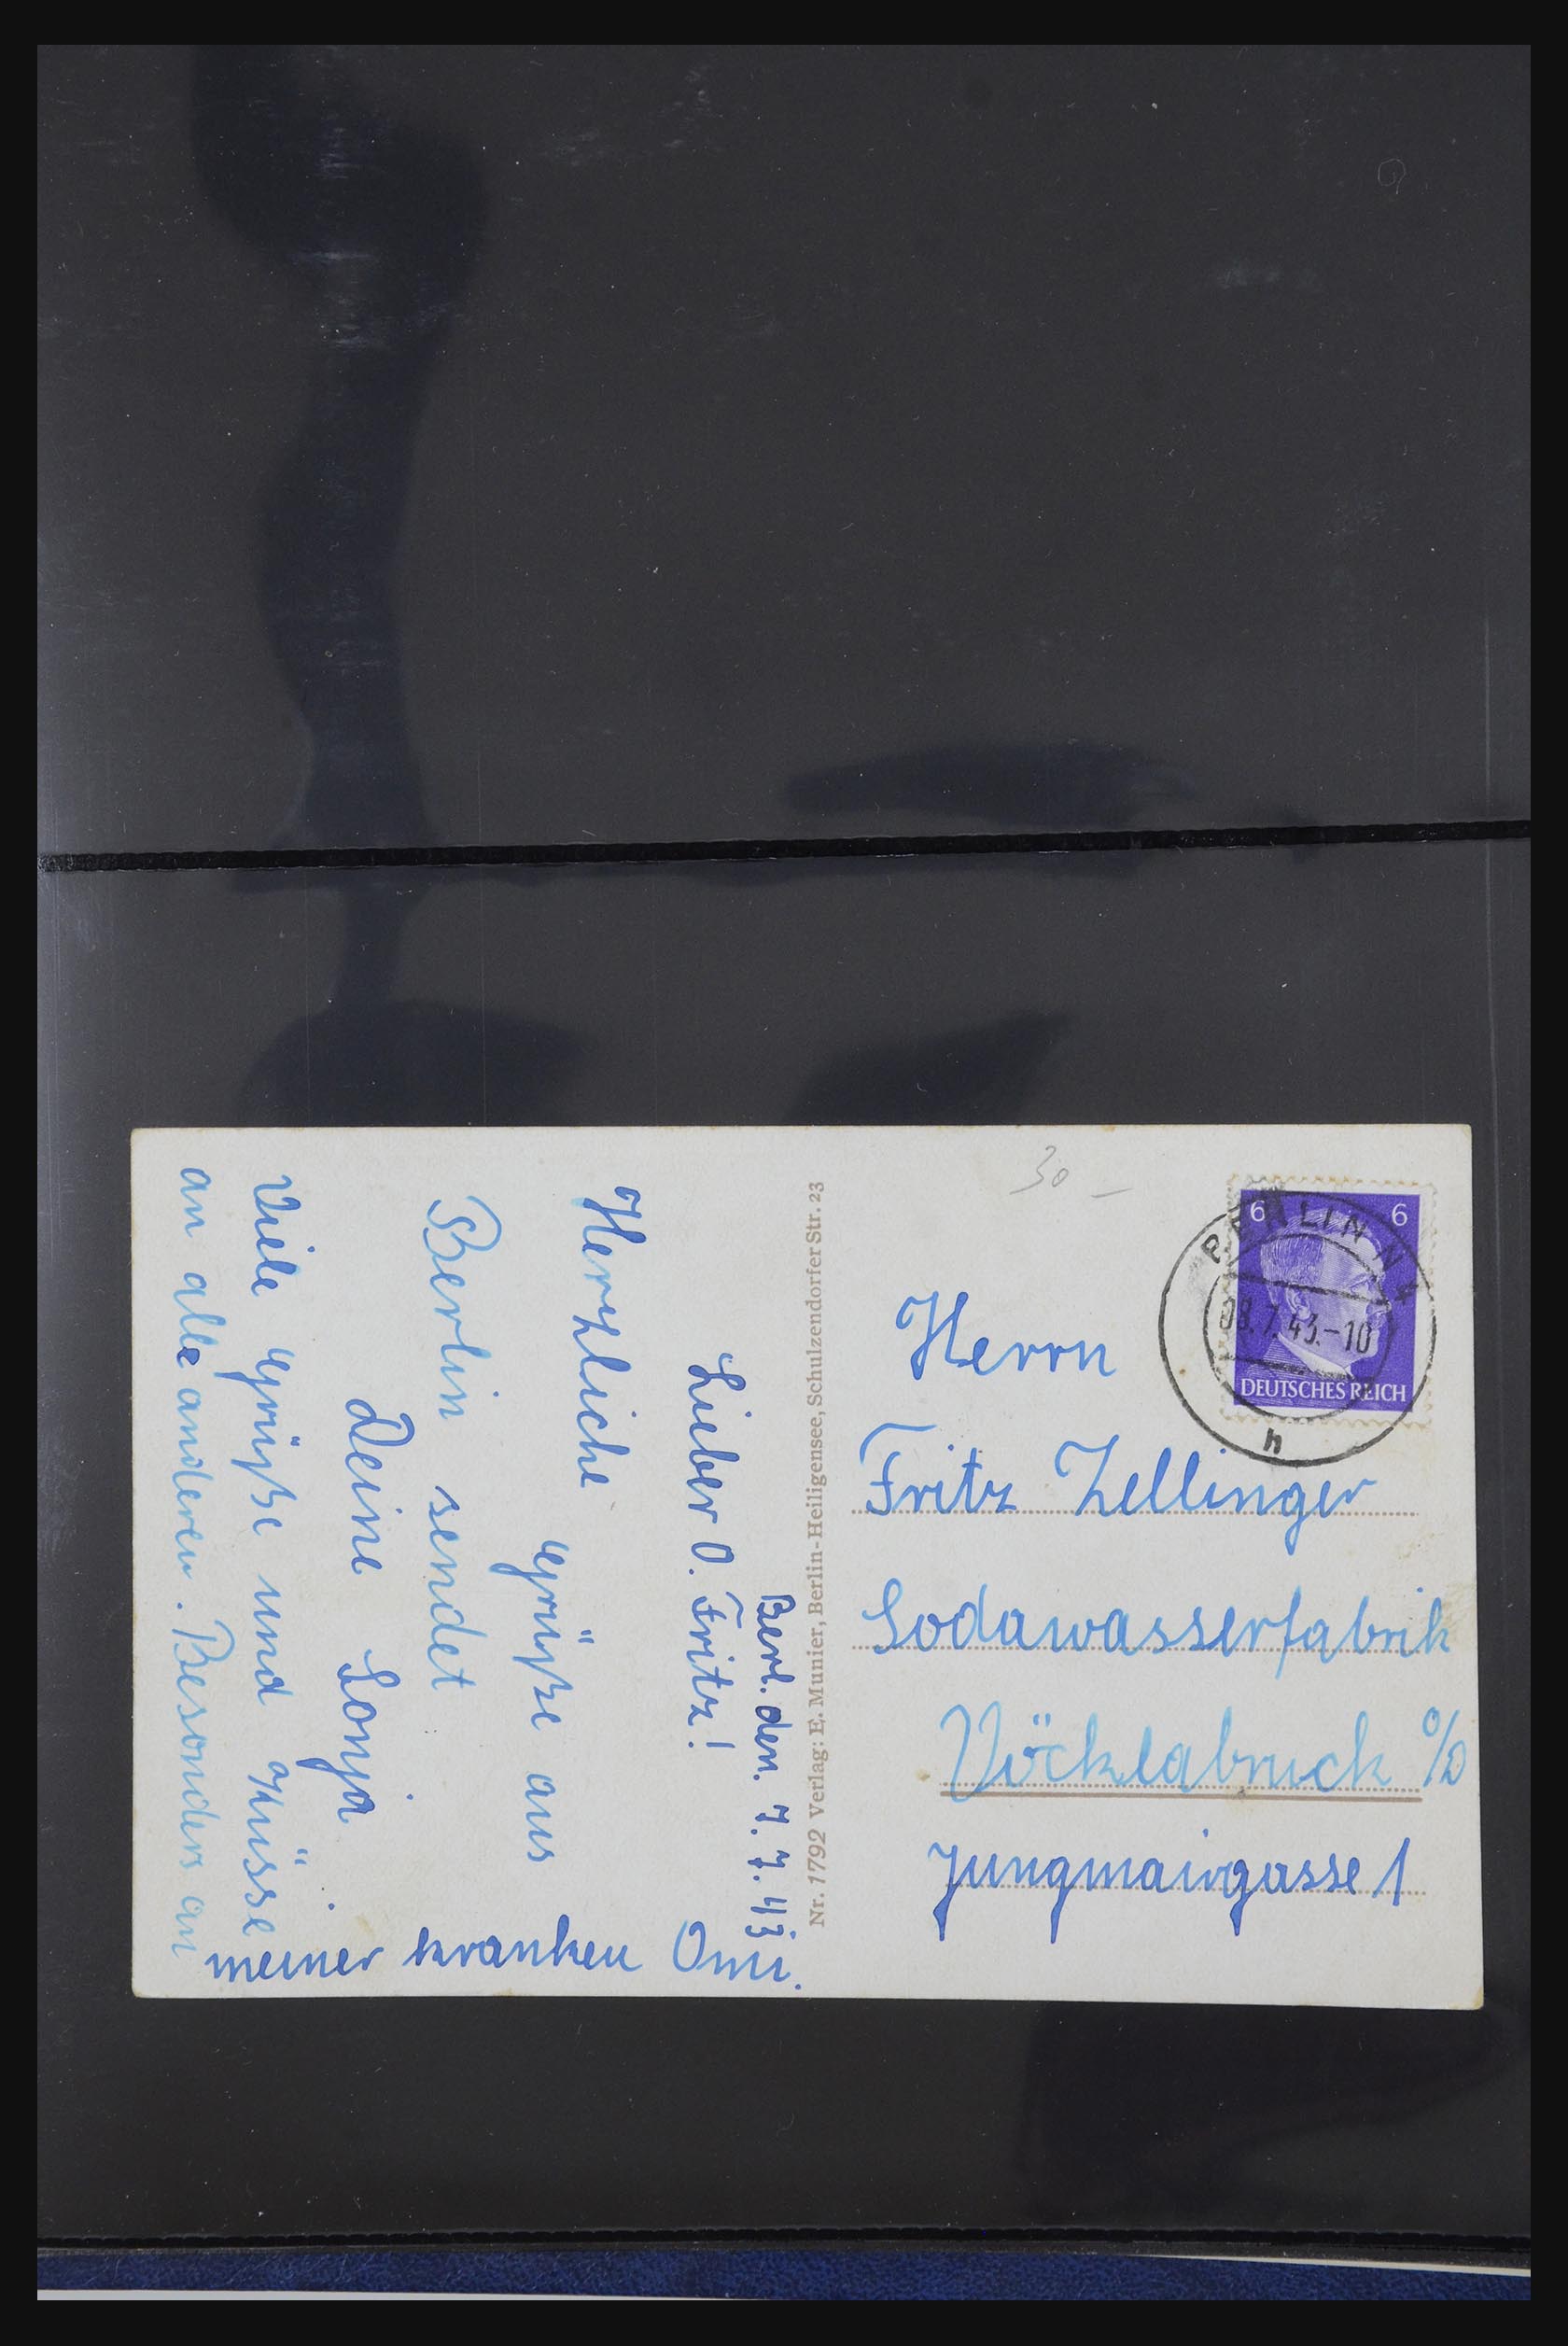 Berl. den. 7.7.43
Lieber O. Fritz!
Herzliche
Grüße aus
Berlin sendet
Deine Sonja
Viele Grüße und Küsse
an alle anderen. Besonders an
meiner kranken Omi.
Nr. 1792 Verlag: E. Munier, Berlin-Heiligensee, Schulzendorfer Str. 23
30 –
6 6
DEUTSCHES REICH
BERLIN N
08.7.43.-10
h
Herrn
Fritz Zellinger
Sodawasserfabrik
Vöcklabruck O/D
Jungmairgasse 1